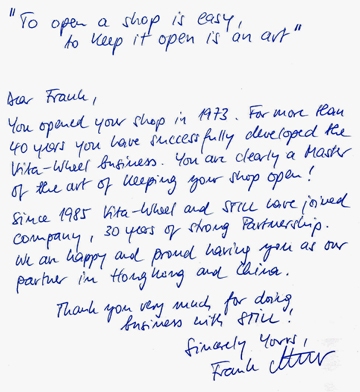 "To open a shop is easy,
to keep it open is an art"
Dear Frank,
You opened your shop in 1973. For more than
40 years you have successfully developed the
Vita-Wheel business. You are clearly a Master
of the art of keeping your shop open!
Since 1985 Vita-Wheel and Still have joined
company, 30 years of strong Partnership.
We are happy and proud having you as our
partner in Hong Kong and China.
Thank you very much for doing
business with Still!
Sincerely Yours,
Frank